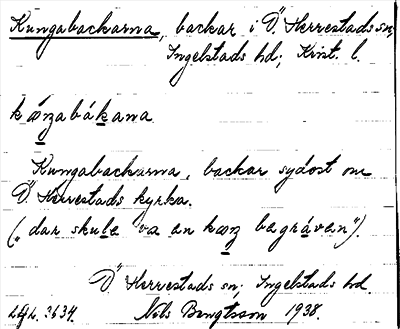 Kungabackarna, backar i Ö. Herrestads sn,
Ingelstads hd; Krist. l.
kåŋabákana
Kungabackarna, backar sydost om
Ö. Herrestads kyrka.
(„dar skula va an kåŋ bagrávan").
Ö Herrestads sn. Ingelstads hd.
Nils Bengtsson 1938.